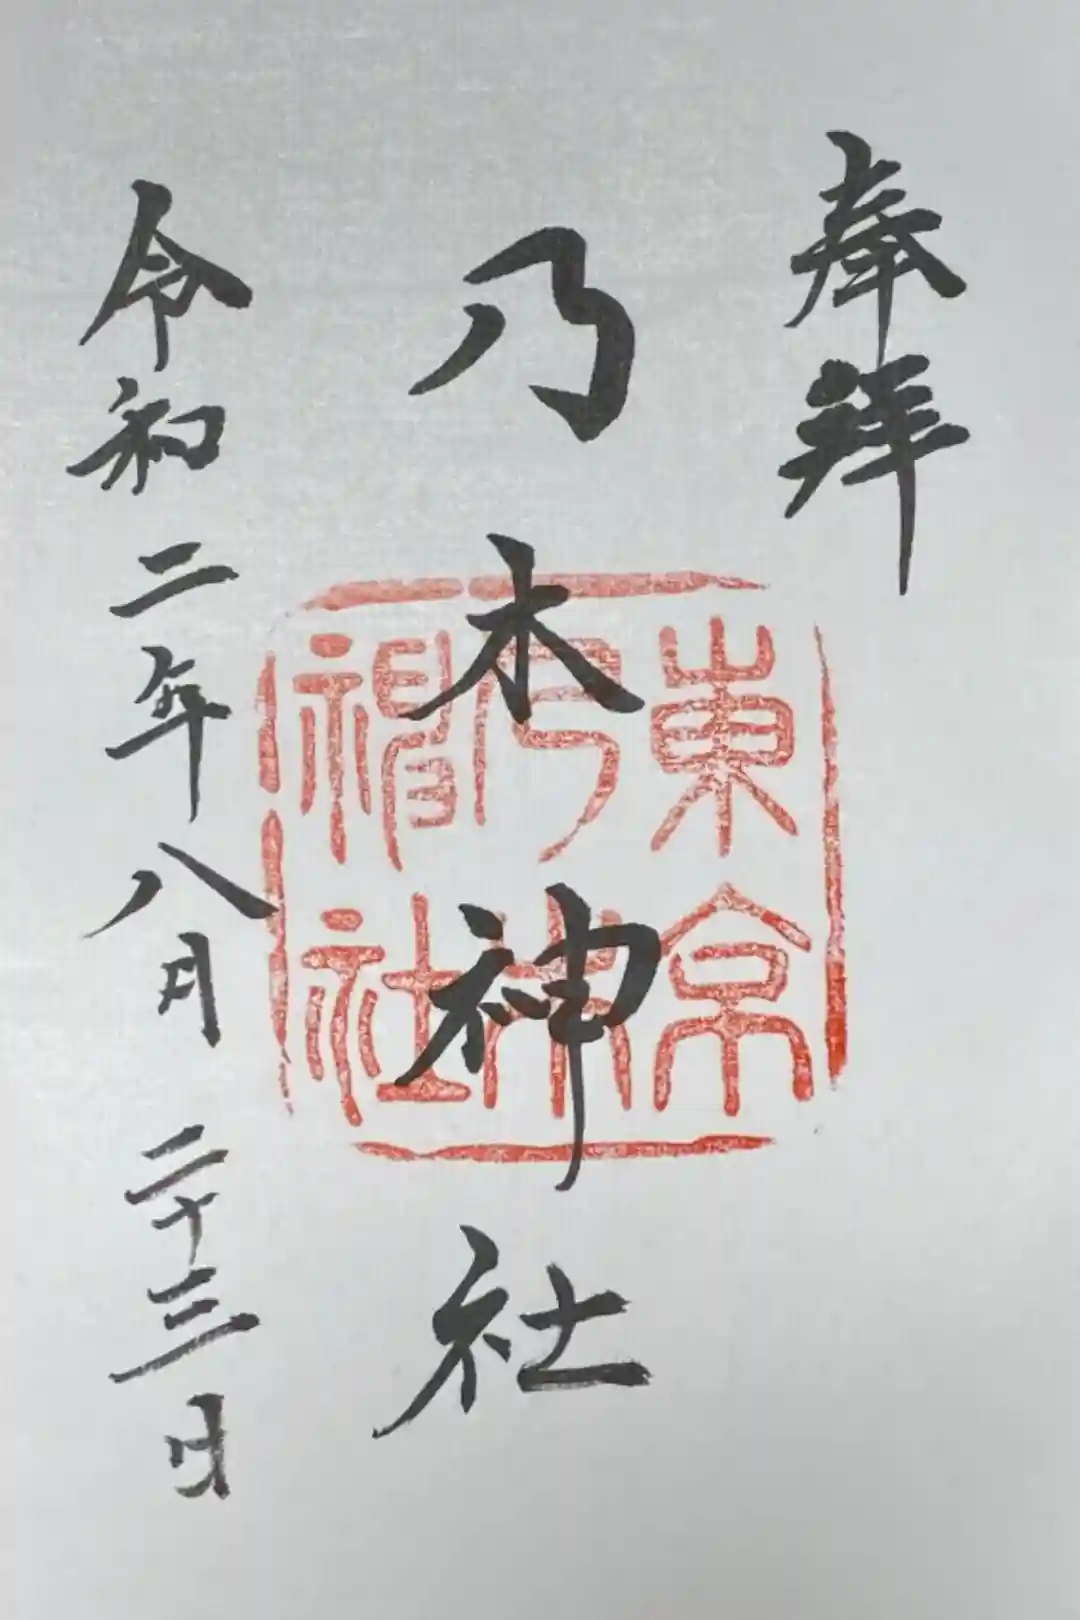 奉拝
乃木神社
東京
乃木
神社
令和二年八月二十三日